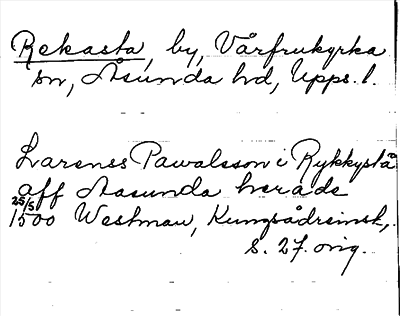 Rekasta, by, Vårfrukyrka
sn, Åsunda hd, Upps. l.
Larenss Pawalsson i Rykkystå
aff Aasunda herade
25/5
1500 Westman, Kungsådreinsk,.
s. 27. orig.